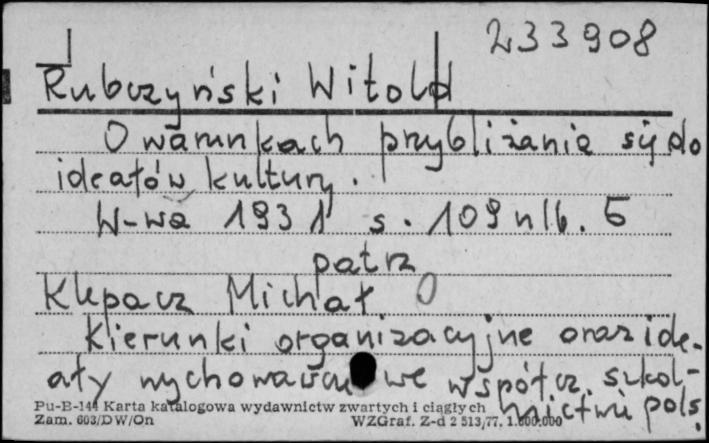 233908
Rubczyński Witold
O warunkach przybliżania się do
ideałów kultury.
W-wa 1931 s. 109 nlb. 5
patrz
Klepacz Michał
Kierunki organizacyjne oraz ide-
ały wychowawcze we współcz. szkol-
nictwie pols.
Pu-B-144 Karta katalogowa wydawnictw zwartych i ciągłych
Zam. 603/DW/On WZGraf. Z-d 2 513/77. 1.600.000